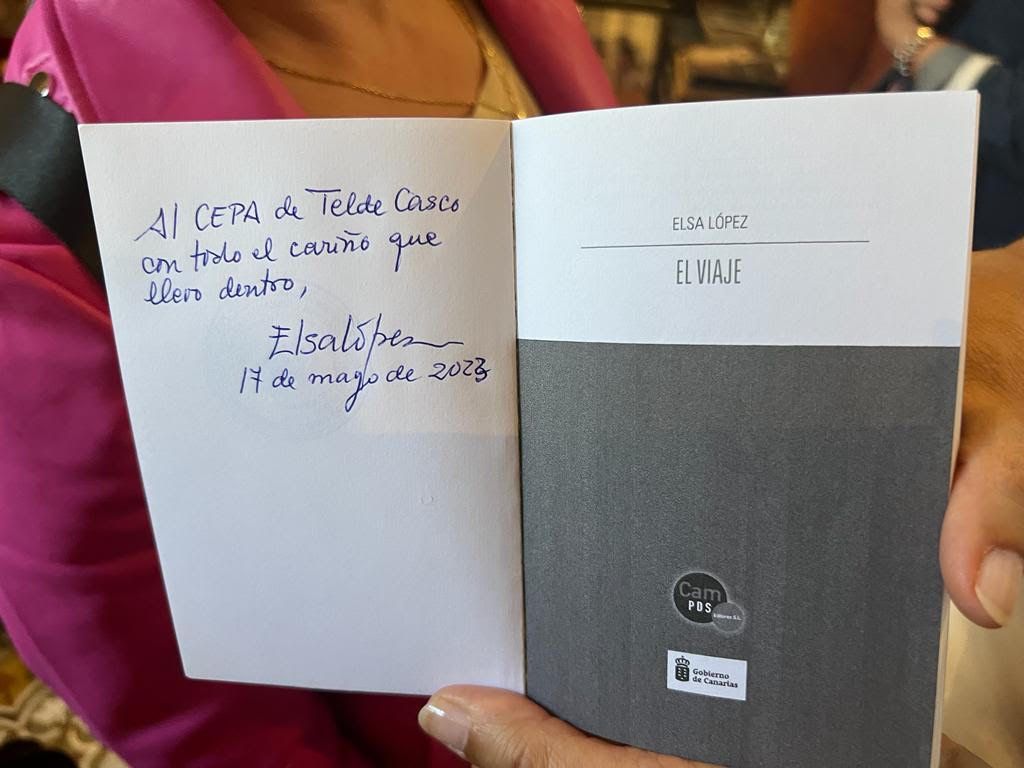 Al CEPA de Telde Casco
con todo el cariño que
llevo dentro,
Elsa López
17 de mayo de 2023
ELSA LÓPEZ
EL VIAJE
Cam
PDS
Editores S.L.
Gobierno
de Canarias